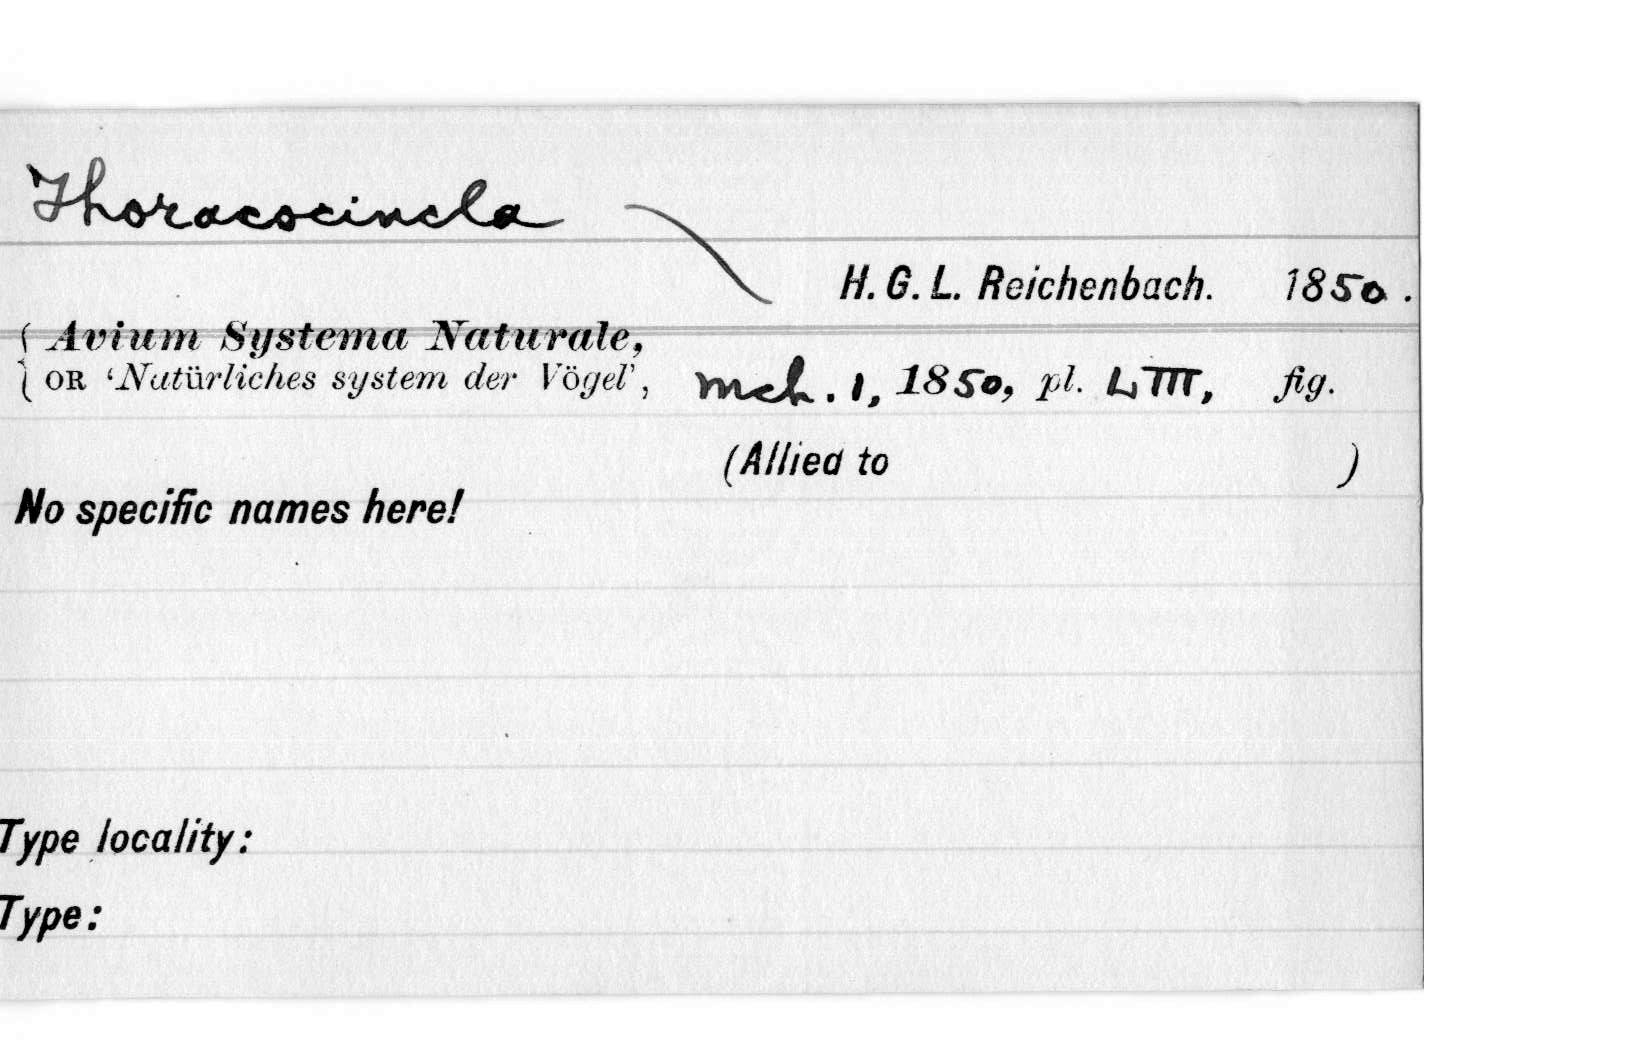 Thoracocincla
H. G. L. Reichenbach. 1850.
{ Avium Systema Naturale,
{ OR 'Natürliches system der Vögel', mch. 1, 1850, pl. LIII, fig.
(Allied to )
No specific names here!
Type locality:
Type: